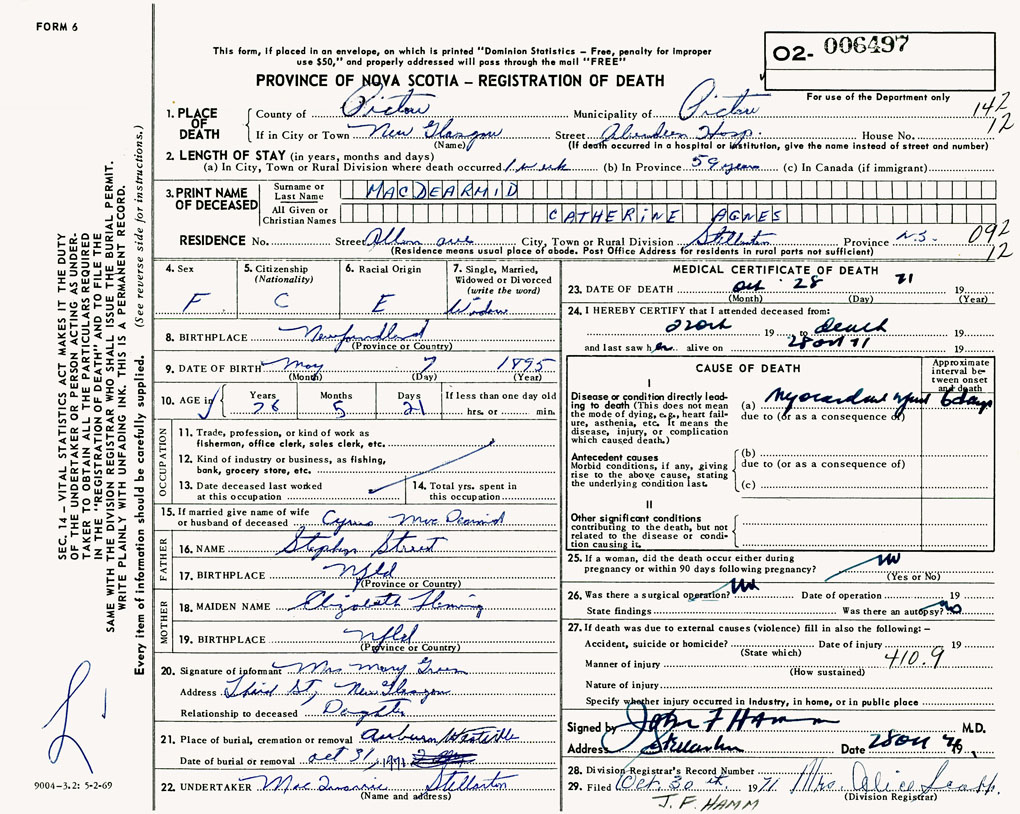 FORM 6
This form, if placed in an envelope, on which is printed "Dominion Statistics – Free, penalty for improper
use $50," and properly addressed will pass through the mail "FREE"
O2- 006497
For use of the Department only
PROVINCE OF NOVA SCOTIA – REGISTRATION OF DEATH
142
12
1. PLACE OF DEATH
County of Pictou Municipality of Pictou
If in City or Town New Glasgow Street Aberdeen Hosp. House No.
(Name) (If death occurred in a hospital or institution, give the name instead of street and number)
2. LENGTH OF STAY (in years, months and days)
(a) In City, Town or Rural Division where death occurred 1 week (b) In Province 59 years (c) In Canada (if immigrant)
3. PRINT NAME OF DECEASED
Surname or Last Name MACDEARMID
All Given or Christian Names CATHERINE AGNES
RESIDENCE No. Street Allan ave City, Town or Rural Division Stellarton Province N.S.
(Residence means usual place of abode. Post Office Address for residents in rural parts not sufficient)
092
12
4. Sex F
5. Citizenship (Nationality) C
6. Racial Origin E
7. Single, Married, Widowed or Divorced (write the word) Widow
8. BIRTHPLACE Newfoundland
(Province or Country)
9. DATE OF BIRTH May 7 1895
(Month) (Day) (Year)
10. AGE in Years 76 Months 5 Days 21 If less than one day old
hrs. or min.
OCCUPATION
11. Trade, profession, or kind of work as
fisherman, office clerk, sales clerk, etc.
12. Kind of industry or business, as fishing,
bank, grocery store, etc.
13. Date deceased last worked
at this occupation
14. Total yrs. spent in
this occupation
15. If married give name of wife
or husband of deceased Cyrus MacDearmid
FATHER
16. NAME Stephen Street
17. BIRTHPLACE Nfld
(Province or Country)
MOTHER
18. MAIDEN NAME Elizabeth Fleming
19. BIRTHPLACE Nfld
(Province or Country)
20. Signature of informant Mrs Mary Green
Address Third St, New Glasgow
Relationship to deceased Daughter
21. Place of burial, cremation or removal Auburn Westville
Date of burial or removal oct 31, 1971
22. UNDERTAKER Stellarton
(Name and address)
MEDICAL CERTIFICATE OF DEATH
23. DATE OF DEATH Oct 28 71 19
(Month) (Day) (Year)
24. I HEREBY CERTIFY that I attended deceased from:
19 to death 19
and last saw her alive on 28 Oct 71 19
CAUSE OF DEATH
Approximate interval between onset and death
I
Disease or condition directly leading
to death (This does not mean
the mode of dying, e.g., heart failure,
asthenia, etc. It means the
disease, injury, or complication
which caused death.)
(a) Myocardial infarct 6 days
due to (or as a consequence of)
Antecedent causes
Morbid conditions, if any, giving
rise to the above cause, stating
the underlying condition last.
(b)
due to (or as a consequence of)
(c)
II
Other significant conditions
contributing to the death, but not
related to the disease or condition
causing it.
25. If a woman, did the death occur either during
pregnancy or within 90 days following pregnancy? No
(Yes or No)
26. Was there a surgical operation? No Date of operation 19
State findings Was there an autopsy? No
27. If death was due to external causes (violence) fill in also the following: –
Accident, suicide or homicide? Date of injury 19
(State which)
410.9
Manner of injury
(How sustained)
Nature of injury
Specify whether injury occurred in Industry, in home, or in public place
Signed by John F Hamm M.D.
Address Stellarton Date 28 Oct
28. Division Registrar's Record Number
29. Filed Oct. 30th. 1971 Mrs. Alice
(Division Registrar)
J. F. HAMM
SEC. 14 – VITAL STATISTICS ACT MAKES IT THE DUTY
OF THE UNDERTAKER OR PERSON ACTING AS UNDERTAKER
TO OBTAIN ALL THE PARTICULARS REQUIRED
IN THE "REGISTRATION OF DEATH" AND TO FILE THE
SAME WITH THE DIVISION REGISTRAR WHO SHALL ISSUE THE BURIAL PERMIT.
WRITE PLAINLY WITH UNFADING INK. THIS IS A PERMANENT RECORD.
Every item of information should be carefully supplied. (See reverse side for instructions.)
9004-3.2: 5-2-69